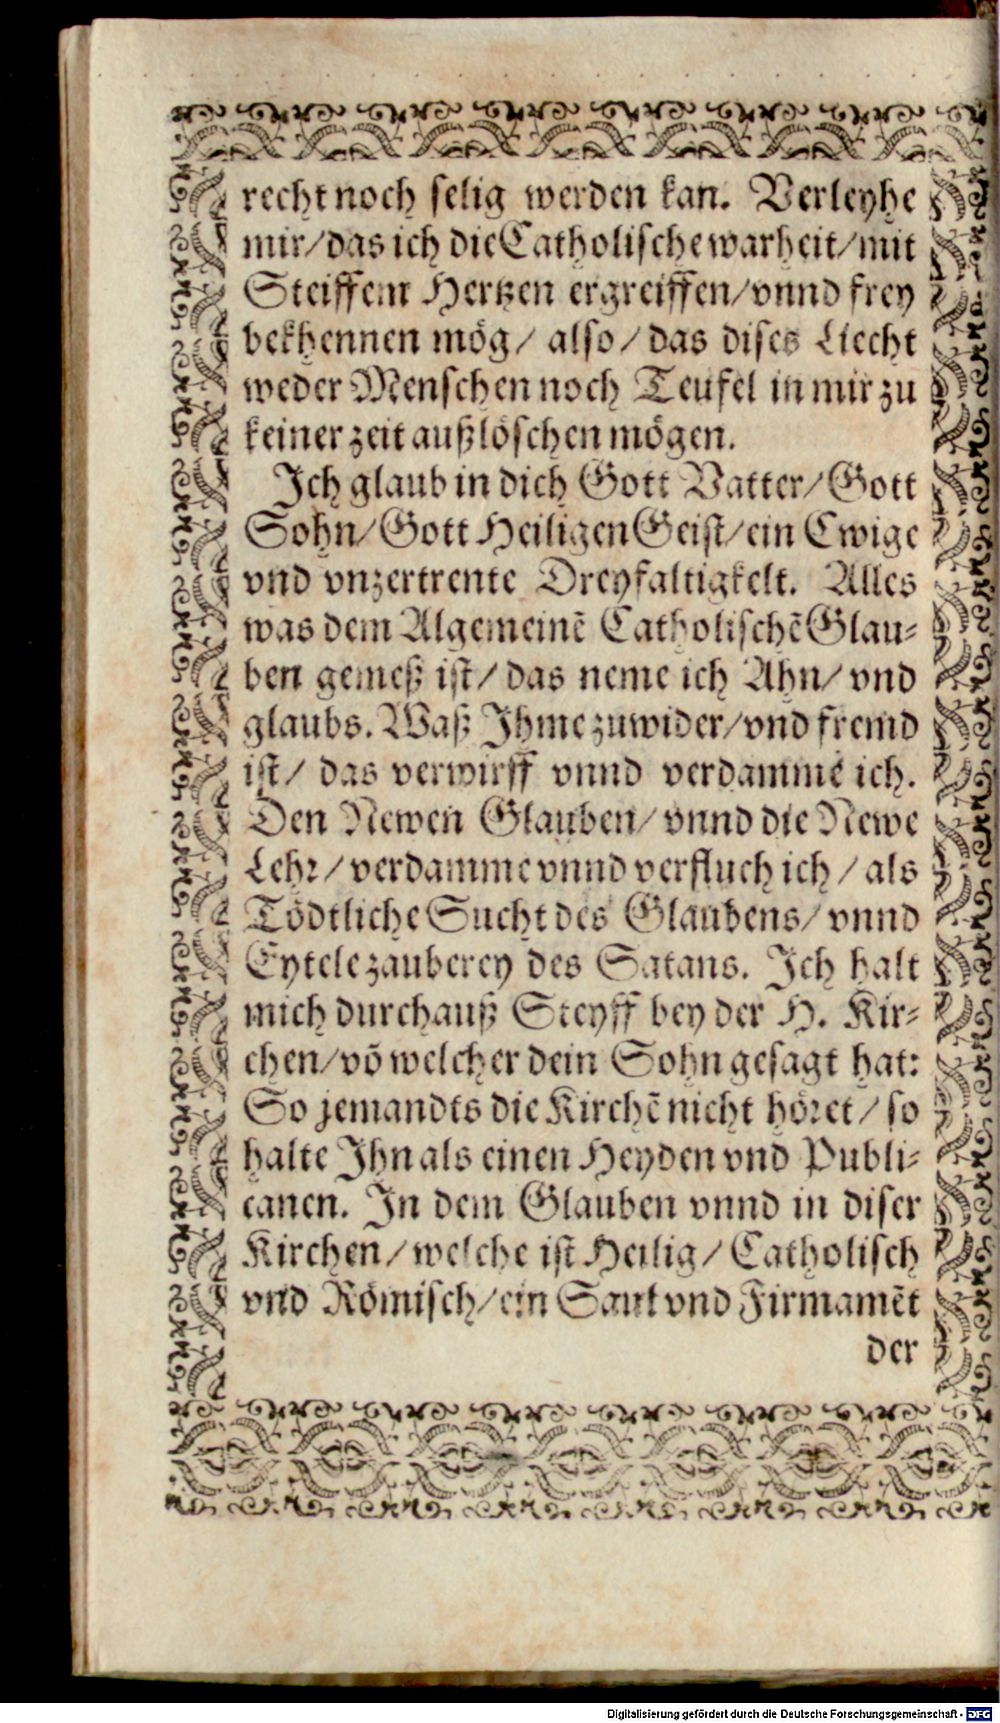 recht noch selig werden kan. Verleyhe
mir/das ich die Catholische warheit/mit
Steiffem Hertzen ergreiffen/vnnd frey
bekhennen mög/ also/ das dises Liecht
weder Menschen noch Teufel in mir zu
keiner zeit außlöschen mögen.
Ich glaub in dich Gott Vatter/Gott
Sohn/Gott Heiligen Geist/ein Ewige
vnd vnzertrente Dreyfaltigkelt. Alles
was dem Algemeinẽ Catholischẽ Glau-
ben gemeß ist/ das neme ich Ahn/ vnd
glaubs. Waß Ihme zuwider/vnd fremd
ist/ das verwirff vnnd verdamme ich.
Den Newen Glauben/ vnnd die Newe
Lehr/ verdamme vnnd verfluch ich/ als
Tödtliche Sucht des Glaubens/ vnnd
Eytele zauberey des Satans. Ich halt
mich durchauß Steyff bey der H. Kir-
chen/võ welcher dein Sohn gesagt hat:
So jemandts die Kirchẽ nicht höret/ so
halte Ihn als einen Heyden vnd Publi-
canen. In dem Glauben vnnd in diser
Kirchen/welche ist Heilig/ Catholisch
vnd Römisch/ein Saul vnd Firmamẽt
der
Digitalisierung gefördert durch die Deutsche Forschungsgemeinschaft - DFG